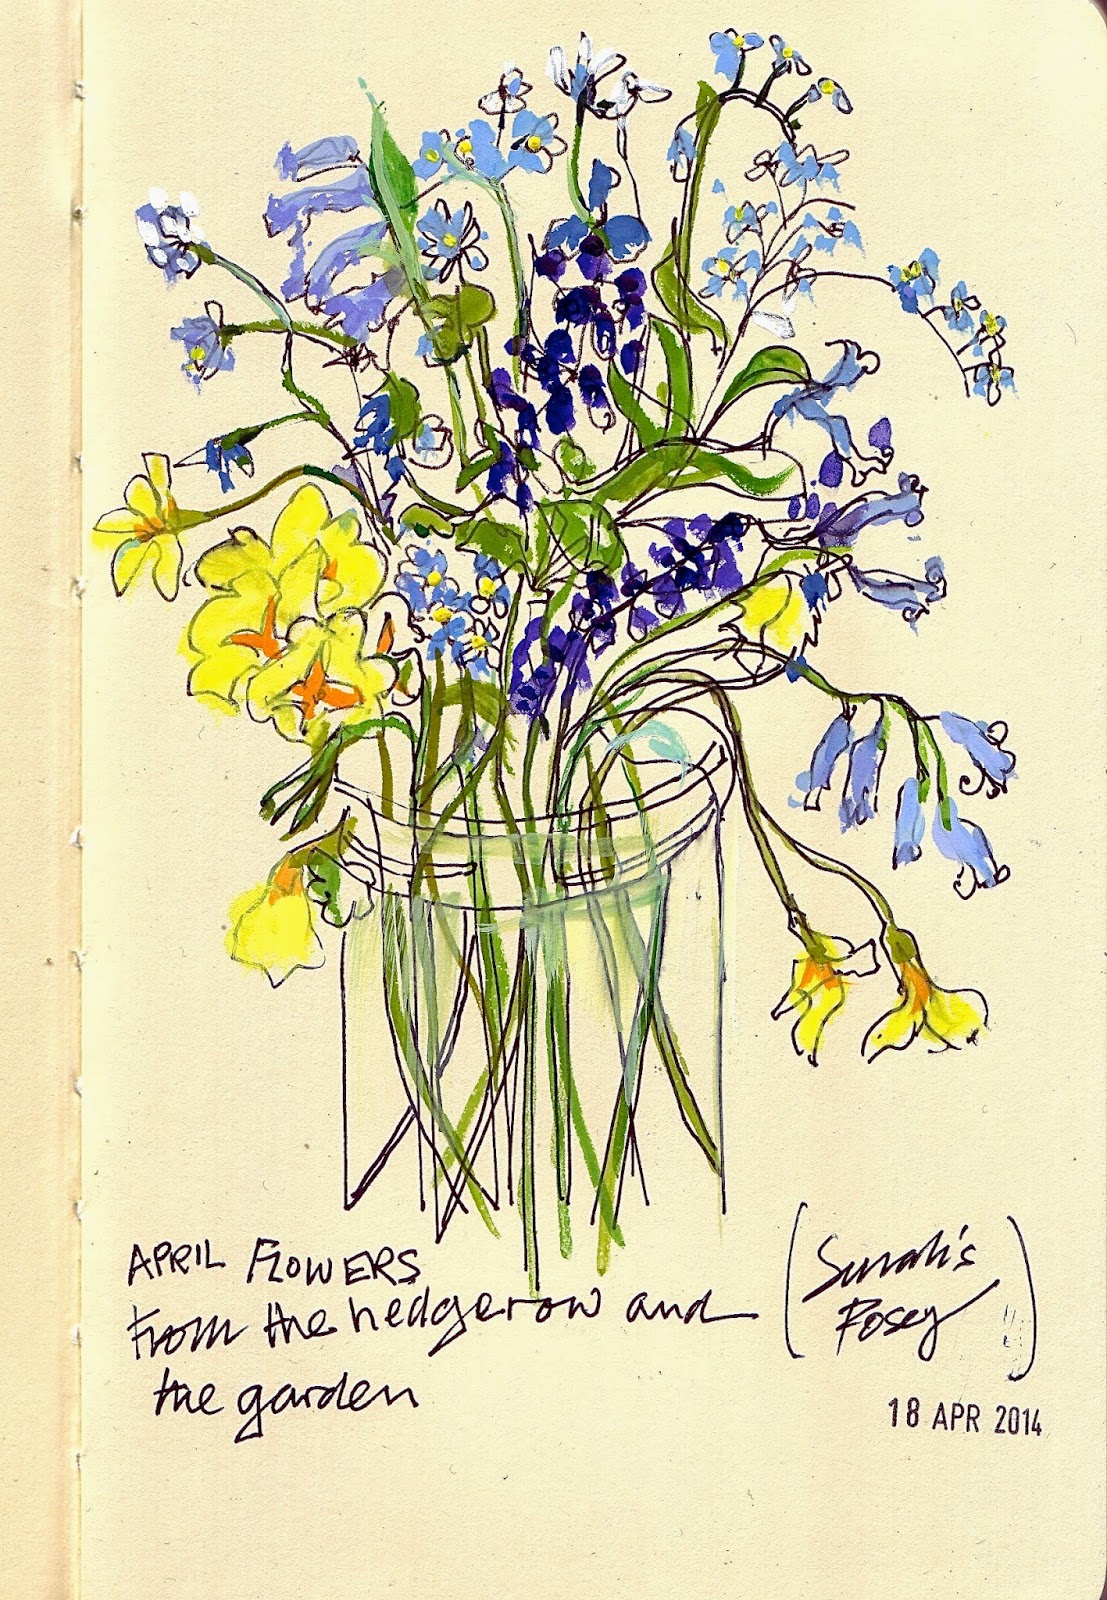 APRIL FLOWERS
from the hedgerow and
the garden
(Sarah's
Posey)
18 APR 2014